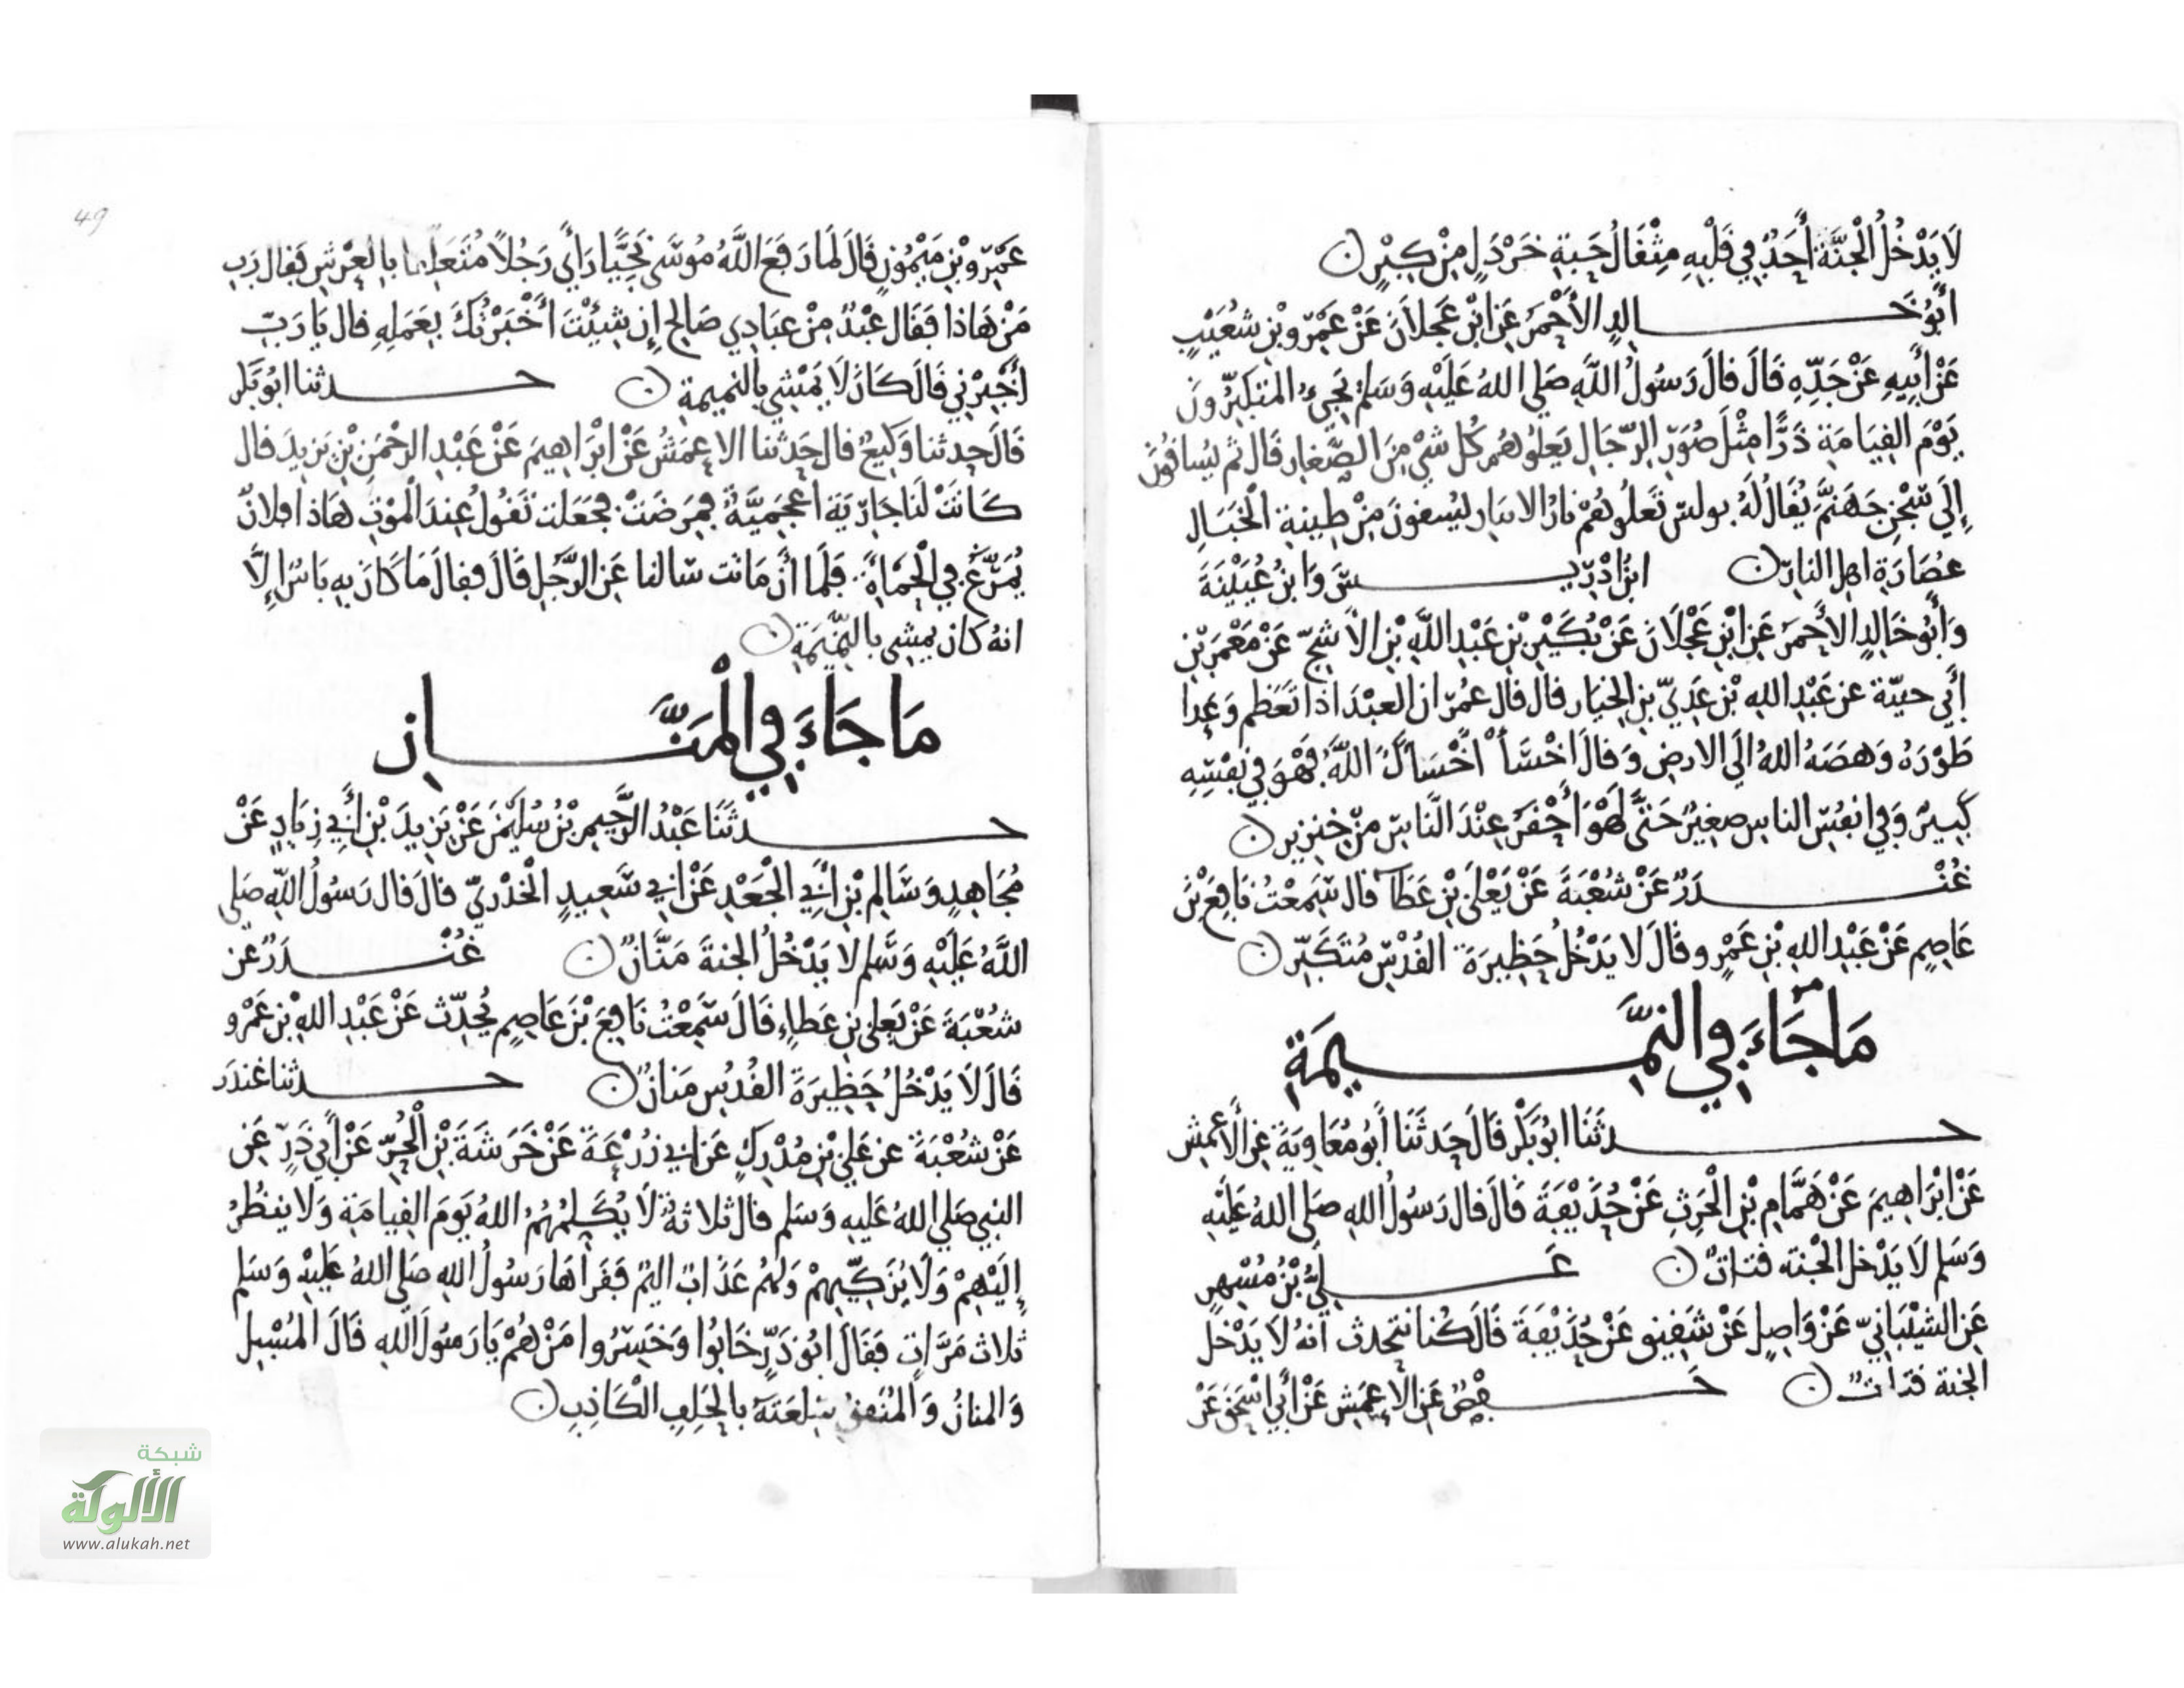 لَا يَدْخُلُ الْجَنَّةَ أَحَدٌ فِي قَلْبِهِ مِثْقَالُ حَبَّةِ خَرْدَلٍ مِنْ كِبْرٍ
أَبُو خَالِدٍ الأَحْمَرُ عَنِ ابْنِ عَجْلاَنَ عَنْ عَمْرِو بْنِ شُعَيْبٍ
عَنْ أَبِيهِ عَنْ جَدِّهِ قَالَ قَالَ رَسُولُ اللَّهِ صَلى اللهُ عَلَيْهِ وَسَلم يَجِيءُ المتكبِّرُونَ
يَوْمَ القِيَامَةِ ذَرًّا مِثْلَ صُوَرِ الرِّجَالِ يَعلُوهُم كُل شَيْءٍ مِنَ الصَّغَارِ قَالَ ثم يُسَاقُونَ
إِلَى سِجْنِ جَهَنَّمَ يُقَالُ لَهُ بولس تَعلُوهُمْ نارُ الانيار يُسقونَ مِنْ طِينةِ الْخَبَالِ
عُصَارَةِ اهلِ النارِ ابْنُ ادْرِيسَ وَابْنُ عُيَيْنَةَ
وَأَبُو خَالِدٍ الأَحْمَرُ عَنِ ابْنِ عَجْلَانَ عَنْ بُكَيْرِ بْنِ عَبْدِ اللَّهِ بْنِ الأَشجِّ عَنْ مَعْمَرِ بْنِ
أَبِي حييّة عن عَبْدِ اللهِ بْنِ عَدِيِّ بنِ الخيَار قال قال عُمَر ان العبْدَ اذا تعَظم وَعدا
طَوْرَهُ وَهصَهُ اللهُ الَى الارضِ وَقالَ اخْسَأْ اخْسَأكَ اللَّهُ فَهْوَ فِي نفسِهِ
كبِيرٌ وَفِي انفُسِ الناسِ صغِيرٌ حَتَّى لَهْوَ أَحْقَرُ عِنْدَ النَّاسِ مِنْ خِنزِيرٍ
غُنْدَرٌ عَنْ شُعْبَةَ عَنْ يَعْلَى بْنِ عَطَآ قال سَمِعْتُ نَافِعَ بْنَ
عَاصِمٍ عَنْ عَبْدِ اللهِ بْنِ عَمْرٍو قَالَ لا يَدْخُلُ حَظِيرَةَ القُدْسِ مُتَكَبِّرٌ
مَا جَاءَ فِي النَّمِيمَةِ
حدثَنَا ابُو بَكْرٍ قَالَ حَدثَنَا أَبُو مُعَاوِيَةَ عَنِ الأَعْمَشِ
عَنْ ابْرَاهِيمَ عَنْ هَمَّامِ بْنِ الْحَرِثِ عَنْ حُذَيْفَةَ قَالَ قال رَسُولُ اللهِ صَلى اللهُ عَلَيْهِ
وَسَلم لَا يَدْخل الْجنة قتاتٌ عَلِيُّ بْنُ مُسْهِرٍ
عَنِ الشيْبَانِيِّ عَنْ وَاصِلٍ عَنْ شَقِيقٍ عَنْ حُذَيْفَةَ قَالَ كُنا نتحدث أنهُ لاَ يَدْخُل
الجنة قتات حَفْصٌ عَنِ الأَعمَشِ عَنْ أَبِي اسْحَق عَنْ
عَمْرِو بْنِ مَيْمُونٍ قَالَ لَما رَفَعَ اللَّهُ مُوسَى نَجِيًّا رَأَى رَجُلاً مُتَعَلِّقا بِالعَرْشِ فقال رَبِّ
مَنْ هَاذا فَقَال عَبْدٌ مِنْ عِبَادِي صَالح إِن شِيئْتَ أَخْبَرْتُكَ بِعَمَلِهِ قال يَا رَبِّ
أَخْبِرْنِي قَالَ كَانَ لَا يَمْشِي بِالنمِيمةِ حدثنا ابُو بَكْر
قَالَ حدثنا وَكِيعٌ قال حَدثنا الاعمَشُ عَنْ ابْرَاهِيمَ عَنْ عَبْدِ الرحْمَنِ بْنِ يَزِيدَ قال
كَانَتْ لَنَا جَارِيَة أعجَمِيَّةٌ فمَرِضَتْ فجَعَلت تَقُولُ عِندَ الْموْتِ هَاذا فلانٌ
يُمَرَّغُ فِي الْحَمْأَةِ فَلَمَّا أَن مَاتت سَالنا عَنِ الرَّجُلِ قَالَ فقالَ مَا كَانَ بِهِ بَاسٌ إِلَّا
انهُ كان يمشِي بالنَّمِيمَةِ
مَا جَاءَ فِي الْمَنَّانِ
حدثَنَا عَبْدُ الرَّحِيمِ بْنُ سُلَيْمَنَ عَنْ يَزِيدَ بْنِ أَبِي زِيَادٍ عَنْ
مُجَاهِدٍ وَسَالِمِ بْنِ أَبِي الْجَعْدِ عَنْ ابِي سَعِيدٍ الْخدْرِيِّ قالَ قال رَسُولُ اللَّهِ صَلى
اللَّهُ عَلَيْهِ وَسَلم لا يَدْخُلُ الجنةَ مَنَّانٌ غُنْدَرٌ عن
شعْبَةَ عَنْ يَعلى بنِ عَطاءٍ قَالَ سَمِعْتُ نَافِعَ بْنَ عَاصِمٍ يُحَدِّث عَنْ عَبْدِ اللهِ بْنِ عَمْرٍو
قَالَ لاَ يَدْخُلُ حَظِيرَةَ القُدُسِ مَنانٌ حدثنا غندَر
عَنْ شُعْبَةَ عن عَلِيِّ بْنِ مُدْرِكٍ عَن ابِي زُرْعَةَ عَنْ خَرَشَةَ بْنِ الْحُرِّ عَنْ أَبِي ذَرٍّ عَنِ
النبِي صَلى اللهُ عَلَيهِ وَسَلم قال ثلاثةٌ لَا يُكَلمُهُمُ اللهُ يَوْمَ القِيامَةِ وَلا ينظُرُ
إِلَيْهِمْ وَلَا يُزَكِّيهِمْ وَلهُمْ عَذَابٌ اليمٌ فَقَرأهَا رَسُولُ اللهِ صَلى اللهُ عَلَيْهِ وَسَلم
ثَلاث مَرَّاتٍ فَقَالَ ابُو ذَرٍّ خَابُوا وَخَسِرُوا مَنْ هُمْ يَا رَسُولَ اللهِ قَالَ المُسْبِل
وَالمنانُ وَالْمُنَفِقُ سِلعَتَهُ بِالْحَلِفِ الْكَاذِبِ
49
شبكة
الألوكة
www.alukah.net